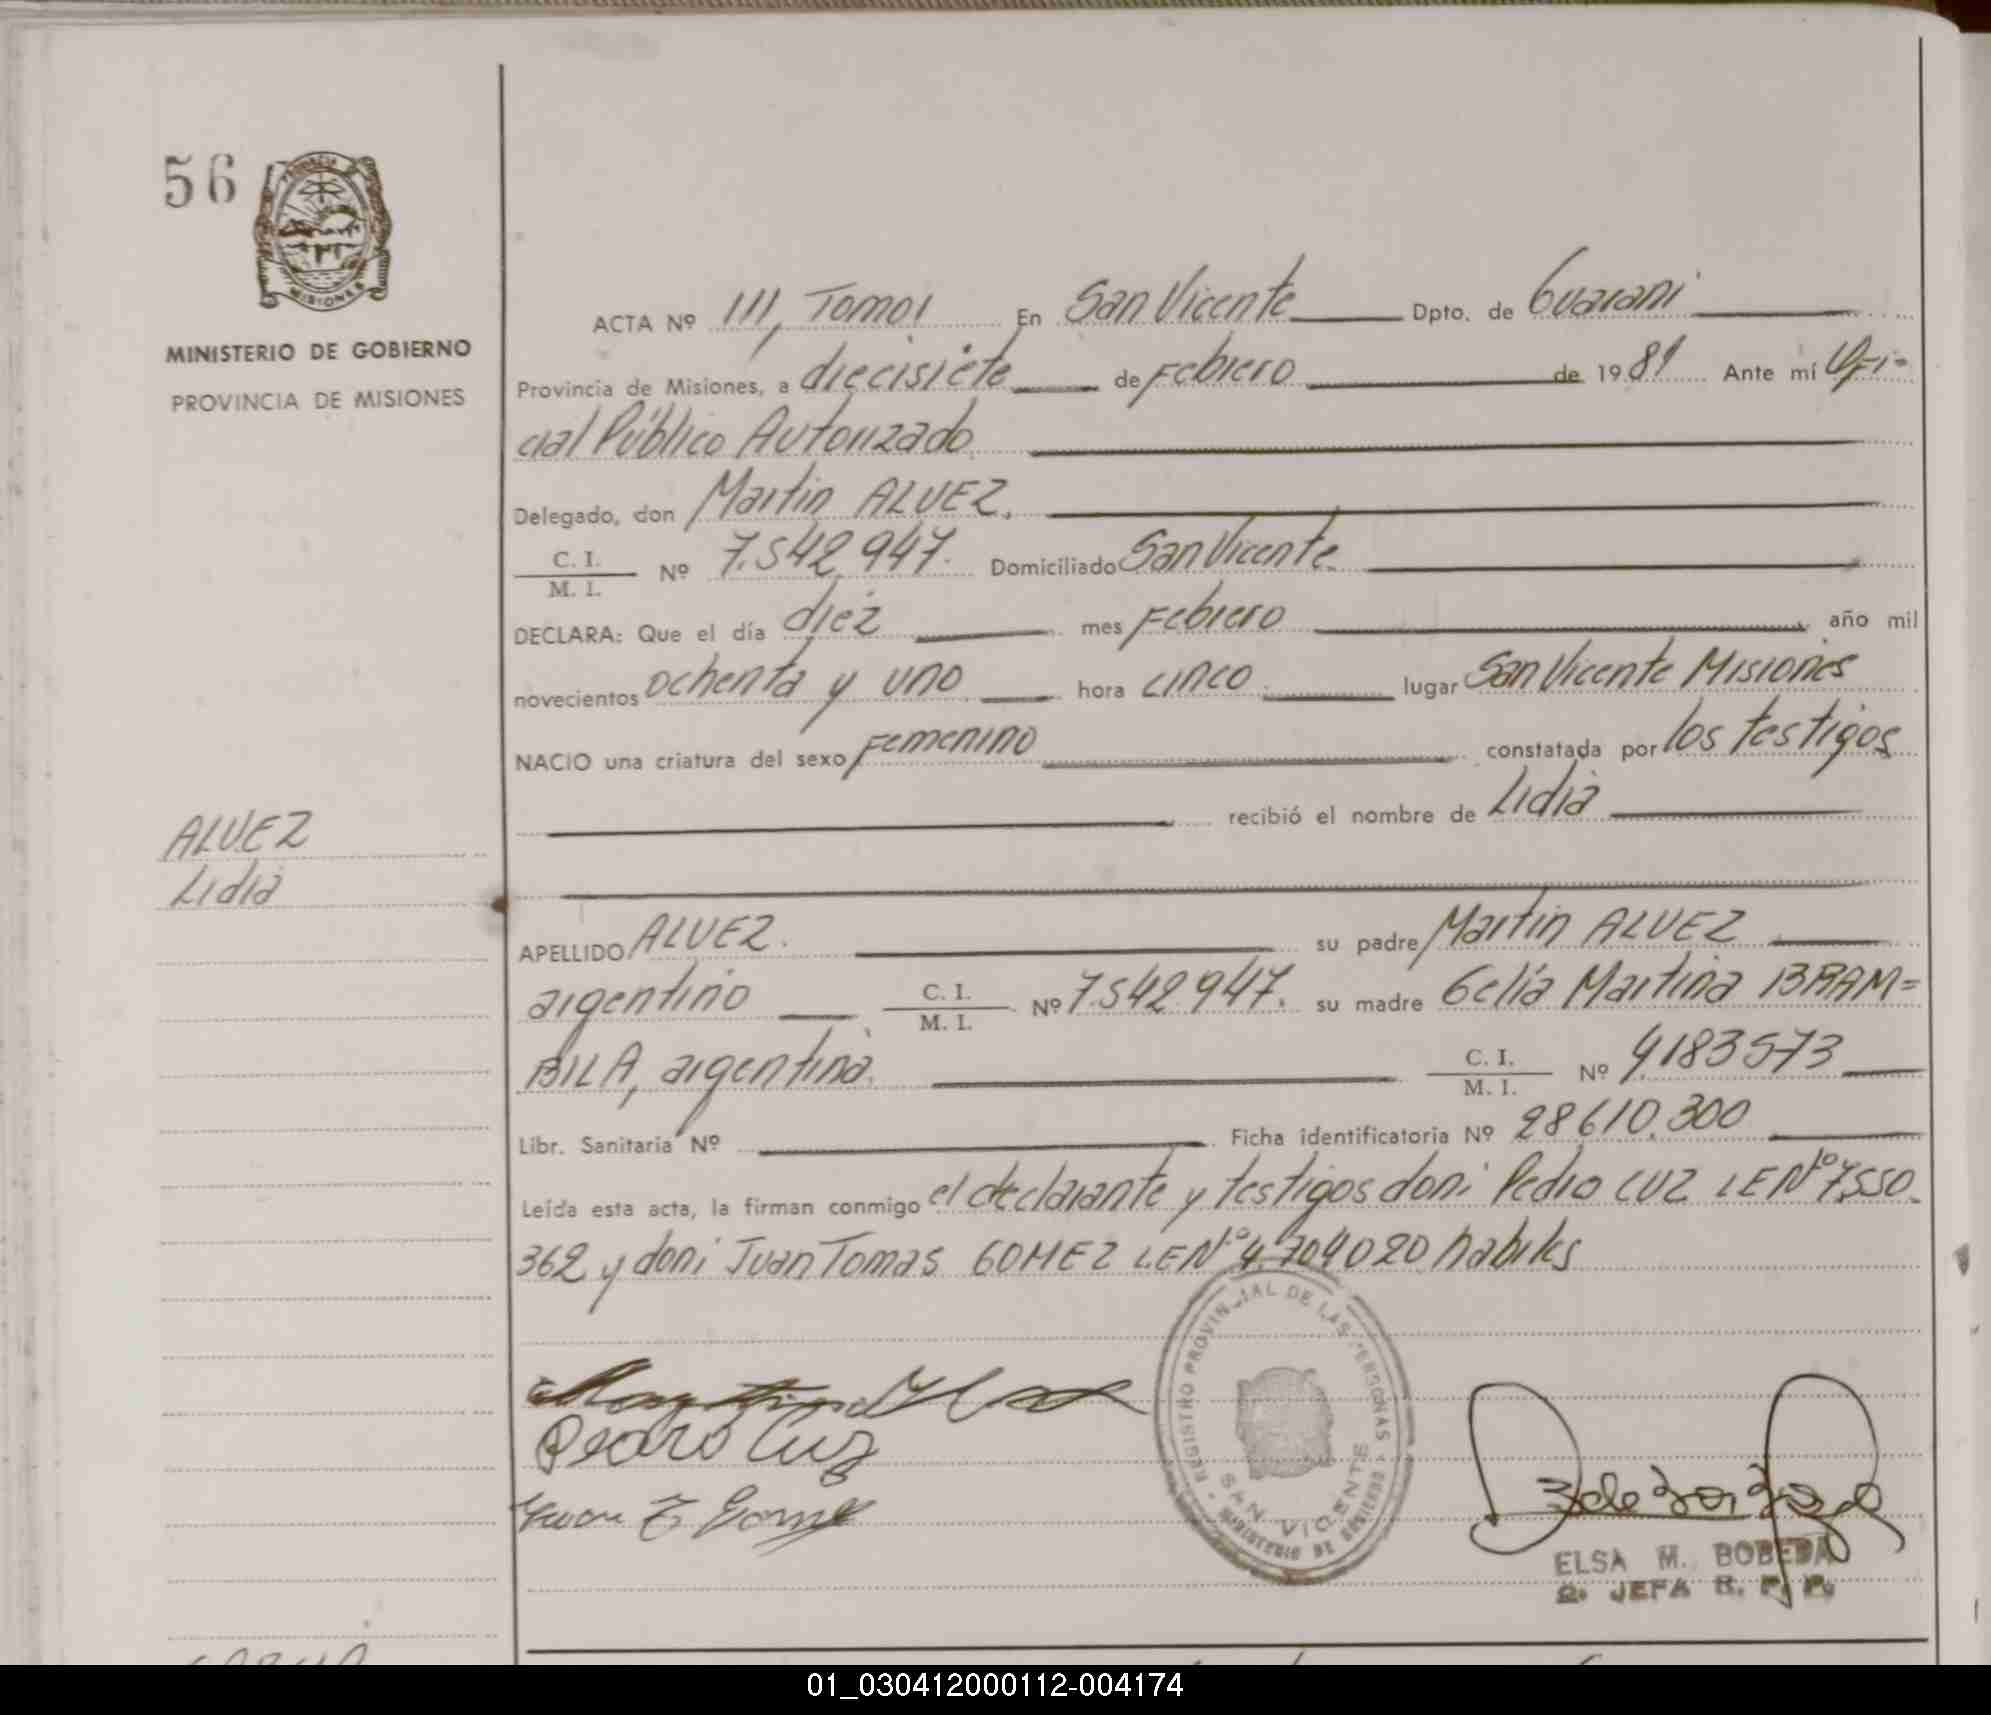 56
MINISTERIO DE GOBIERNO
PROVINCIA DE MISIONES
ACTA Nº 111, Tomo I En San Vicente Dpto. de Guarani
Provincia de Misiones, a diecisiete de Febrero de 1981 Ante mí Ofi-
cial Público Autorizado
Delegado, don Martin ALVEZ.
C. I.
M. I. Nº 7.542.947. Domiciliado San Vicente.
DECLARA: Que el día diez mes Febrero año mil
novecientos ochenta y uno hora cinco lugar San Vicente Misiones
NACIO una criatura del sexo Femenino constatada por los testigos
recibió el nombre de Lidia
ALVEZ
Lidia
APELLIDO ALVEZ. su padre Martin ALVEZ
argentino C. I. M. I. Nº 7.542.947. su madre Celia Martina BRAM=
BILA, argentina. C. I. M. I. Nº 9.183573
Libr. Sanitaria Nº Ficha identificatoria Nº 28.610.300
Leída esta acta, la firman conmigo el declarante y testigos don: Pedro CUZ LE Nº 7.550.
362 y don: Juan Tomas GOMEZ LE Nº 4.704020 habiles
Pedro Cuz
Juan T Gomez
REGISTRO PROVINCIAL DE LAS PERSONAS
SAN VICENTE
MINISTERIO DE GOBIERNO
ELSA M. BOBEDA
2. JEFA R. P. P.
01_030412000112-004174